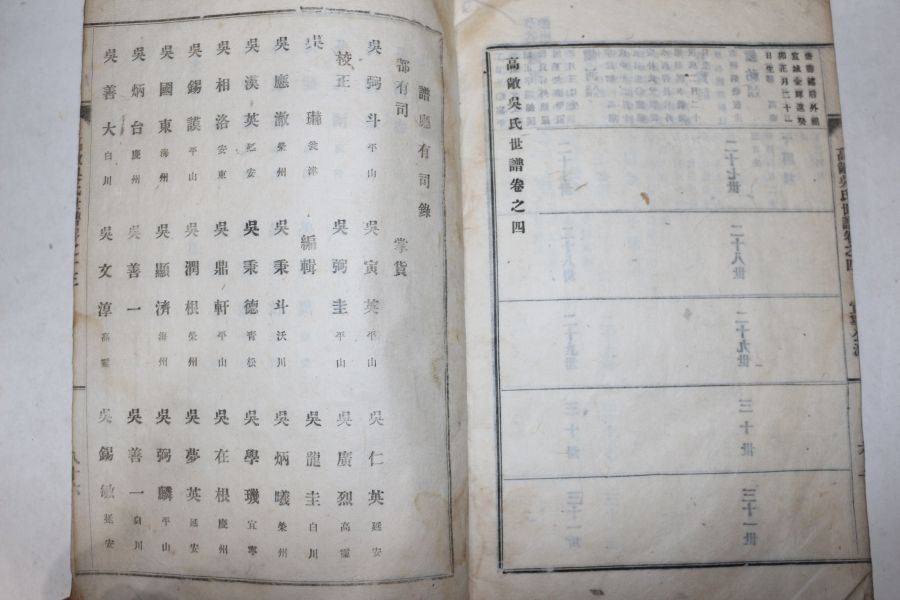 高敞吳氏世譜卷之四
二十七世
二十八世
二十九世
三十世
三十一世
高敞吳氏世譜卷之四
譜廳有司錄
都有司 掌貨
吳弼斗 平山 吳寅英 平山 吳仁英 延安
校正 吳弼圭 平山 吳廣烈 高靈
吳 瓮津 編輯 吳龍圭 白川
吳應澈 榮州 吳秉斗 沃川 吳炳曦 榮州
吳漢英 延安 吳秉德 青松 吳學璣 宜寧
吳相洛 安東 吳鼎軒 平山 吳在根 慶州
吳錫謨 平山 吳潤根 榮州 吳夢英 延安
吳國東 海州 吳顯濟 海州 吳弼麟 平山
吳炳台 慶州 吳善一 慶州 吳善一 白川
吳善大 白川 吳文淳 高靈 吳錫敏 延安